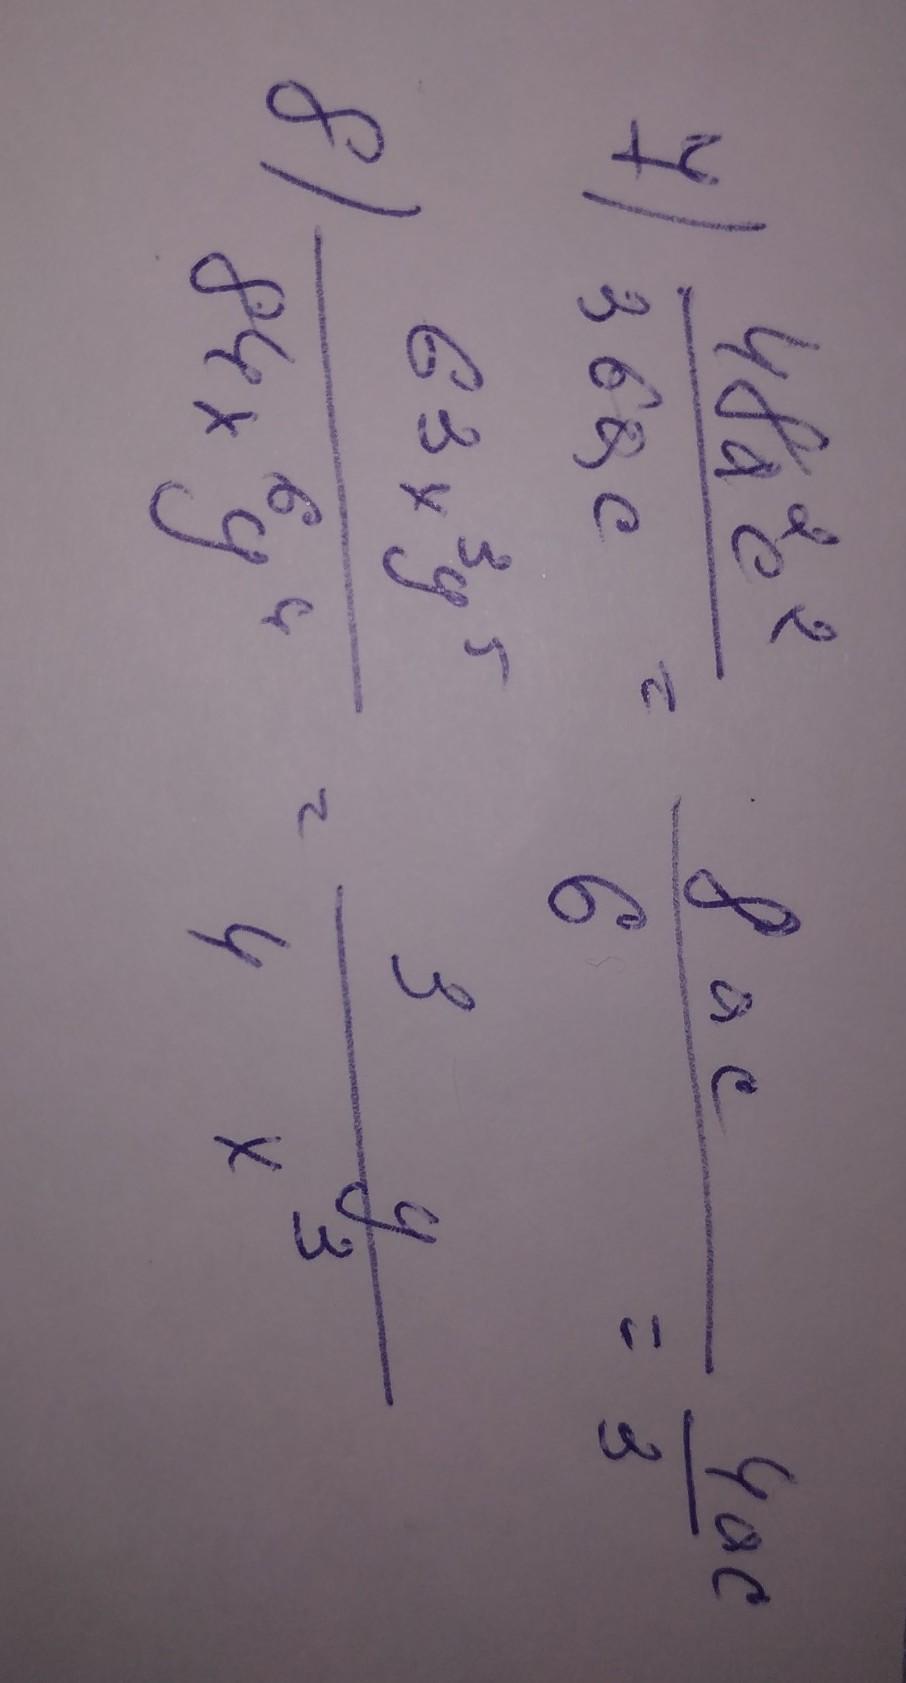 7) 48a²c² / 36ac = 8ac / 6 = 4ac / 3
8) 63x³y⁵ / 84x⁶y⁴ = 3y / 4x³